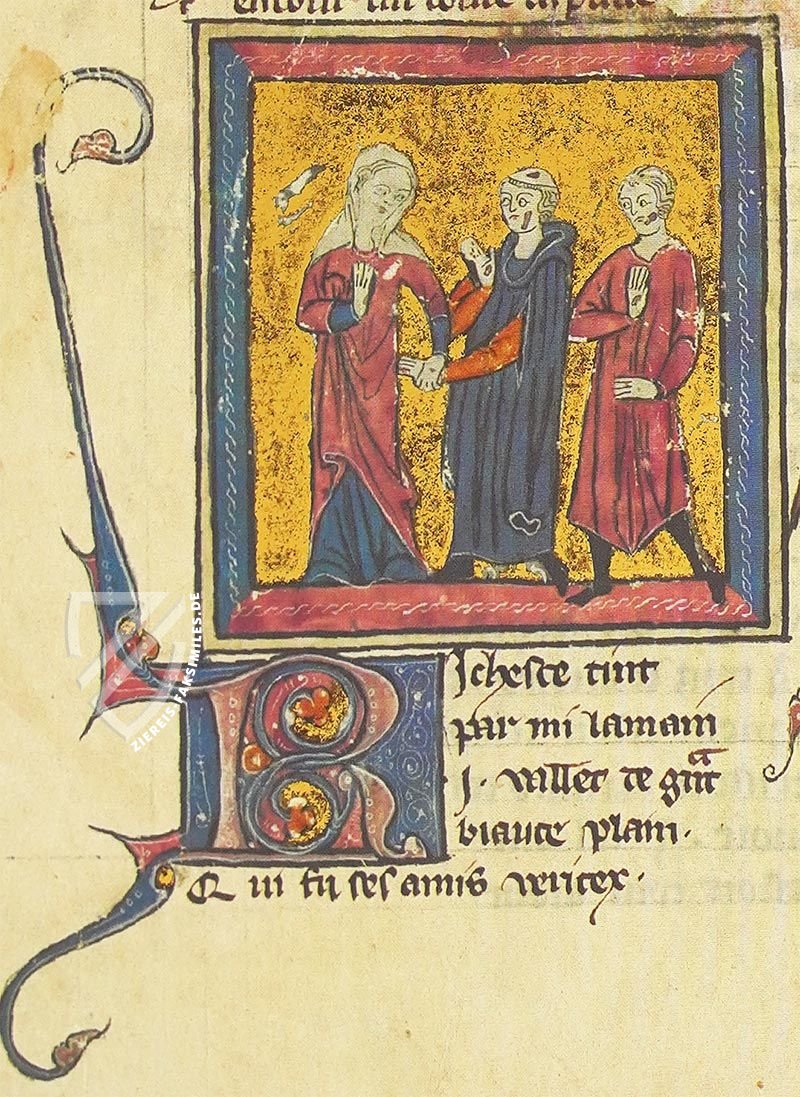 Richesce tint
par mi la main
.I. vallet de gͣnt
biaute plain.
Qui fu ses amis veritex.
ZIEREIS FAKSIMILES.DE